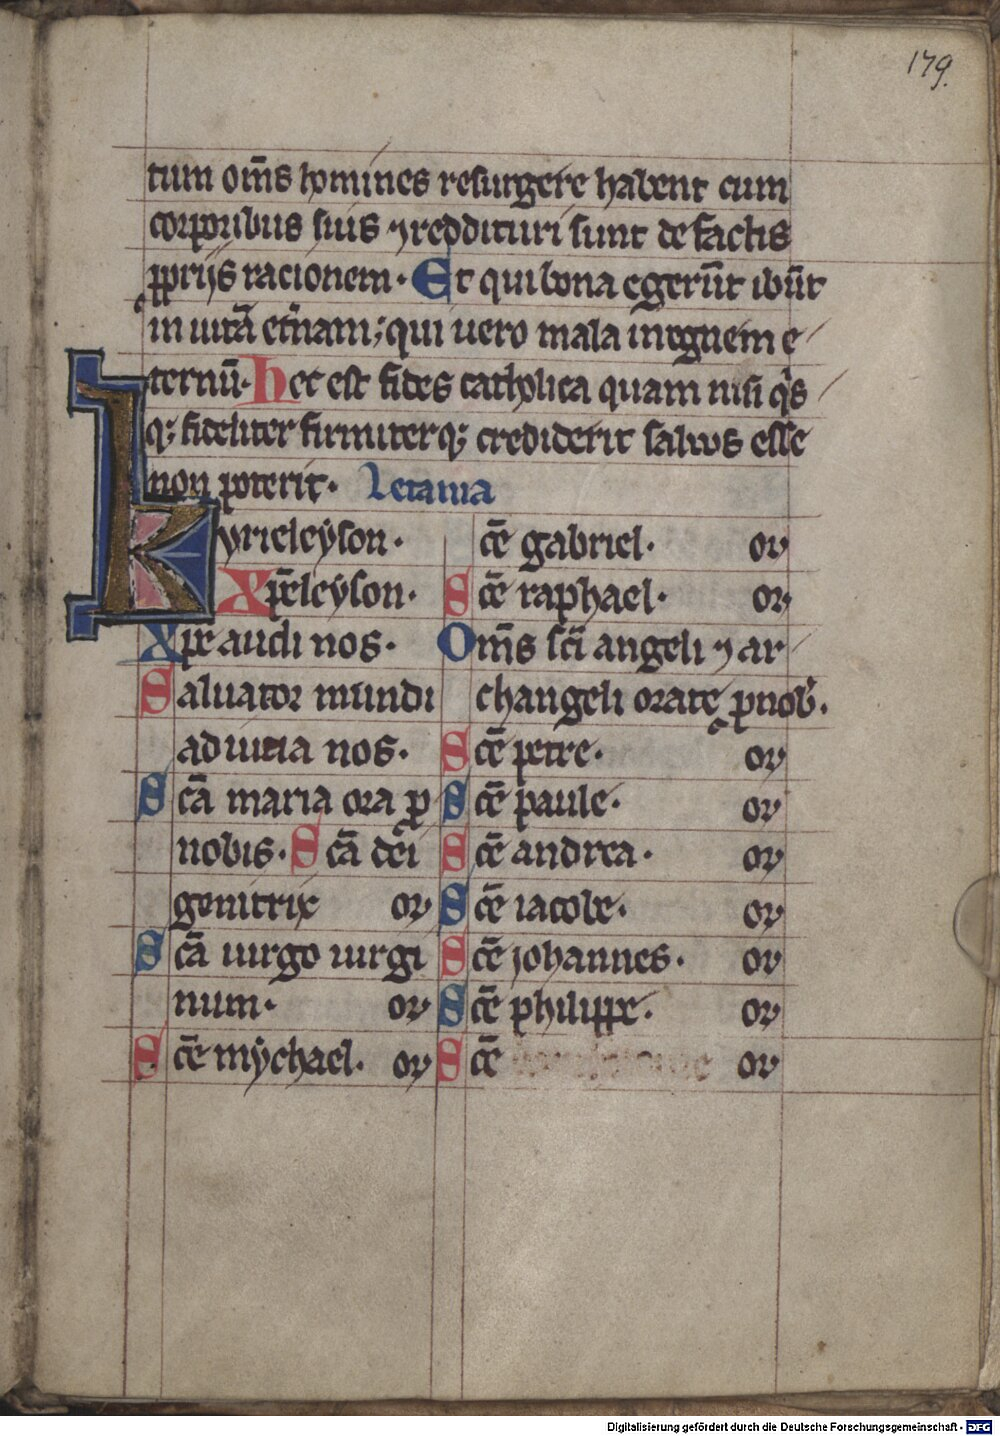 179.
tum om̄s homines resurgere habent cum
corporibus suis ⁊ reddituri sunt de factis
ꝓprijs racionem. Et qui bona egerūt ibūt
in uitā et̄nam; qui uero mala in ignem e
ternū. Hec est fides catholica quam nisi qͥs
qꝫ fideliter firmiterqꝫ crediderit saluus esse
non poterit. Letania
Kyrieleyson.
Xp̄eleyson.
Xpe audi nos.
Saluator mundi
adiuua nos.
Scā maria ora ꝓ
nobis. Scā dei
genitrix or
Scā uirgo uirgi
num. or
Scē mẏchael. or
scē gabriel. or
Scē raphael. or
Om̄s sci angeli ⁊ ar
changeli orate ꝓ nob.
Scē petre. or
Scē paule. or
Scē andrea. or
Scē iacobe. or
Scē johannes. or
Scē philippe. or
Scē or
Digitalisierung gefördert durch die Deutsche Forschungsgemeinschaft - DFG